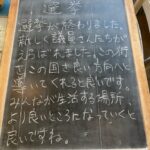 選挙
選挙が終わりました。
新しく議員さんたちが
えらばれました。この街
この国を良い方向へと
導いてくれると良いです。
みんなが生活する場所、
より良いところになっていくと
良いですね。